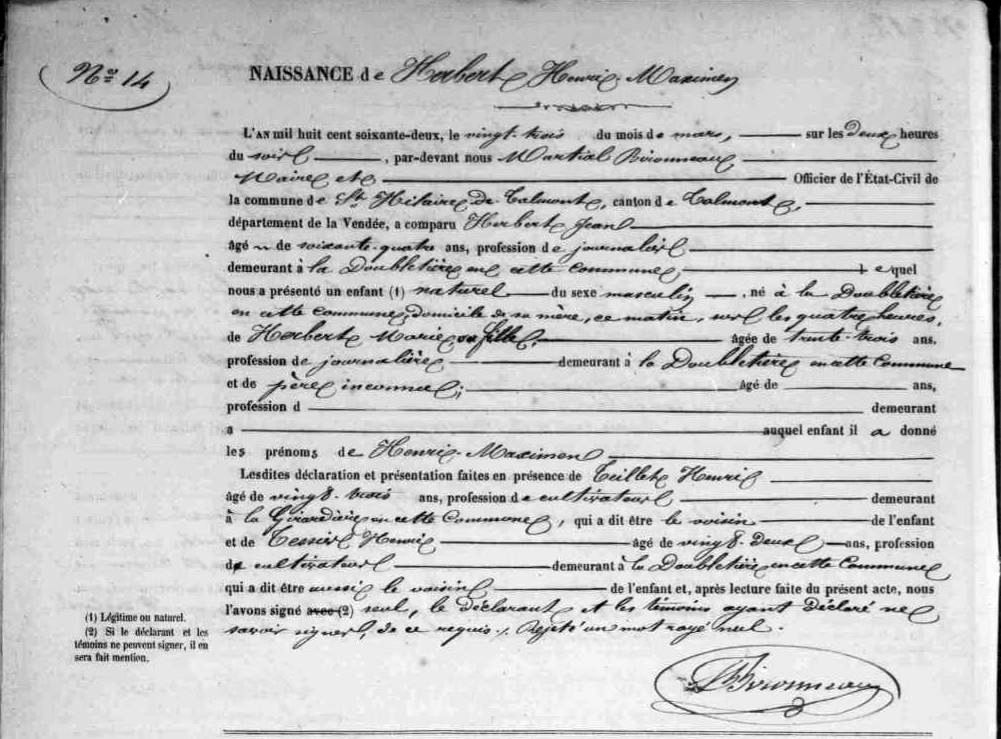 N.º 14
NAISSANCE de Herbert Henri-Maximen
L'AN mil huit cent soixante-deux, le vingt-trois du mois de mars, sur les Deux heures
du soir, par-devant nous Martial Bironneau
Maire et Officier de l'État-Civil de
la commune de St. Hilaire de Talmont, canton de Talmont,
département de la Vendée, a comparu Herbert Jean
âgé de soixante-quatre ans, profession de journalier
demeurant à la Doubletière en cette commune, lequel
nous a présenté un enfant (1) naturel du sexe masculin, né à la Doubletière
en cette commune, domicile de sa mère, ce matin, sur les quatre heures,
de Herbert Marie sa fille, âgée de trente-trois ans,
profession de journalière demeurant à la Doubletière en cette Commune
et de père inconnu; âgé de ans,
profession d demeurant
a auquel enfant il a donné
les prénoms de Henri-Maximen
Lesdites déclaration et présentation faites en présence de Teillet Henri
âgé de vingt-trois ans, profession de cultivateur demeurant
à la Girardière en cette Commune, qui a dit être le voisin de l'enfant
et de Tessier Henri âgé de vingt-deux ans, profession
de cultivateur demeurant à la Doubletière en cette Commune
qui a dit être aussi le voisin de l'enfant et, après lecture faite du présent acte, nous
l'avons signé avec (2) seul, le déclarant et les témoins ayant déclaré ne
savoir signer, de ce requis. Rejeté un mot rayé nul.
(1) Légitime ou naturel.
(2) Si le déclarant et les
témoins ne peuvent signer, il en
sera fait mention.
Bironneau